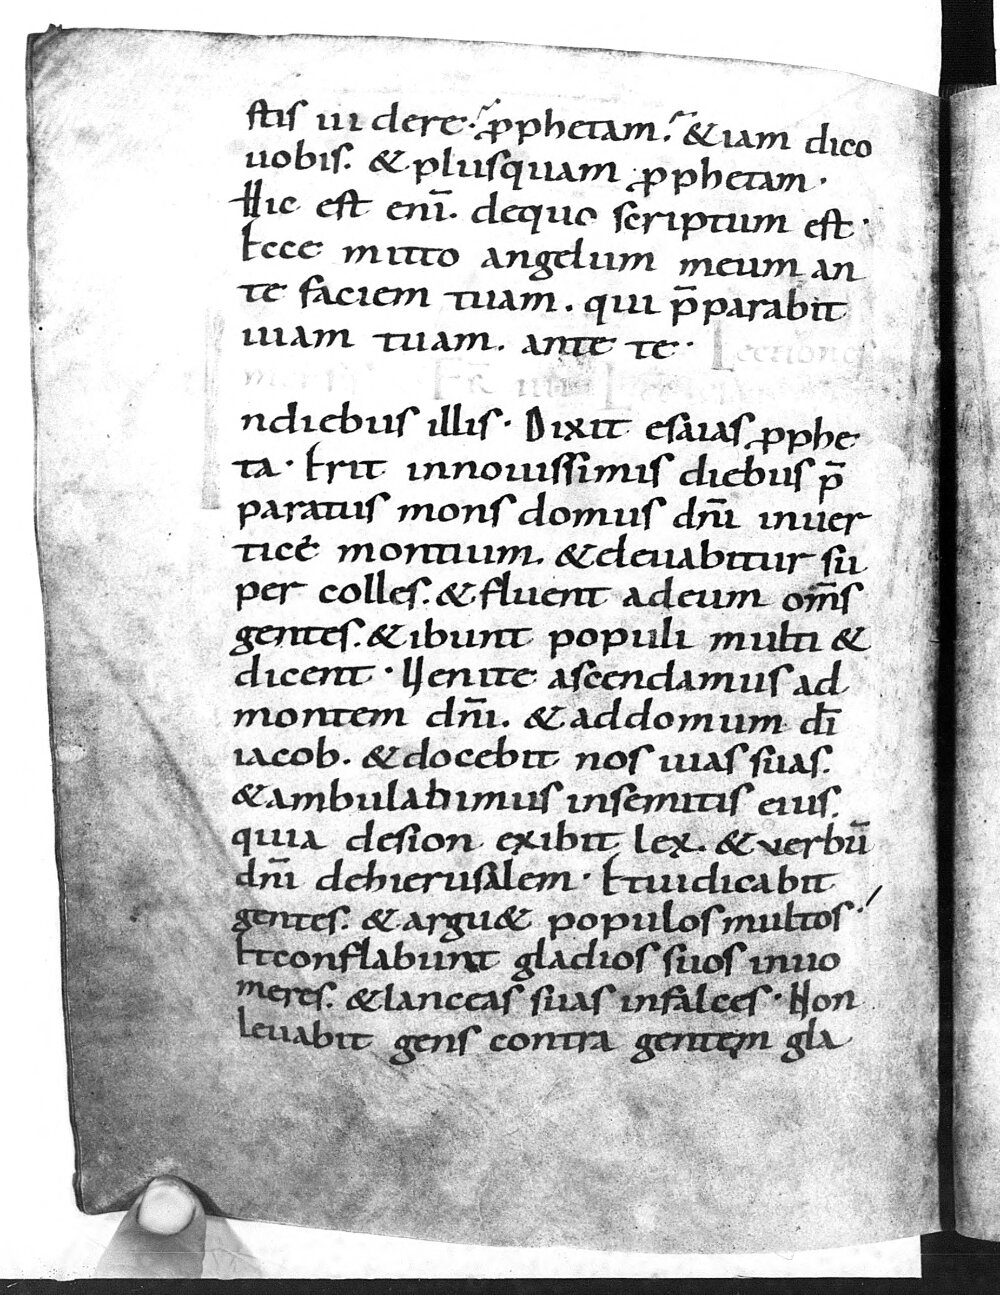 stis uidere· ꝓphetam. &iam dico
uobis. & plusquam ꝓphetam·
Hic est eni̅. dequo scriptum est·
Ecce mitto angelum meum an
te faciem tuam. qui p̅parabit
uiam tuam. ante te· Lectiones
ndiebus illis· Dixit esaias ꝓphe
ta· Erit innouissimis diebus p̅
paratus mons domus dn̅i inuer
tice montium. &eleuabitur su
per colles. &fluent adeum om̅s
gentes. &ibunt populi multi &
dicent· Uenite ascendamus ad
montem dn̅i. &addomum di̅
iacob. &docebit nos uias suas.
&ambulabimus insemitis eius.
quia desion exibit lex. &verbu̅
dn̅i dehierusalem· Etiudicabit
gentes. &argu& populos multos·
Etconflabunt gladios suos inuo
meres. &lanceas suas infalces· Non
leuabit gens contra gentem gla